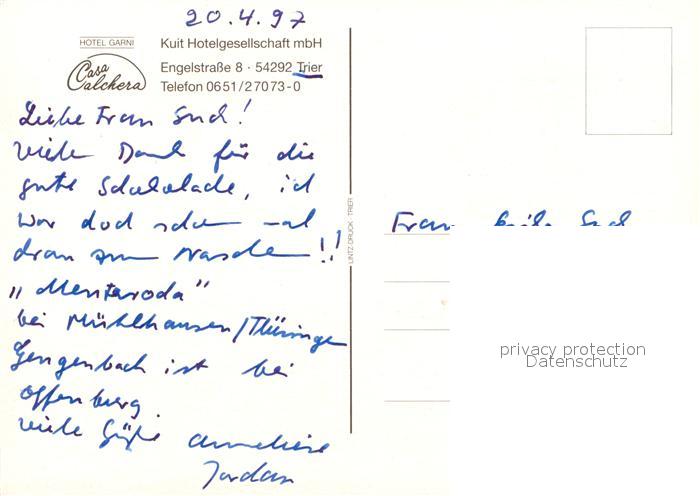 20.4.97
HOTEL GARNI
Casa Calchera
Kuit Hotelgesellschaft mbH
Engelstraße 8 · 54292 Trier
Telefon 0651/27073-0
Liebe Frau
viele Dank für die
gute Schokolade, ich
war doch schon mal
dran zum Naschen!!
„Menteroda"
bei Mühlhausen/Thüringen
Gengenbach ist bei
Offenburg.
viele Grüße Anneliese
Jordan
LINTZ-DRUCK · TRIER
Frau
privacy protection
Datenschutz